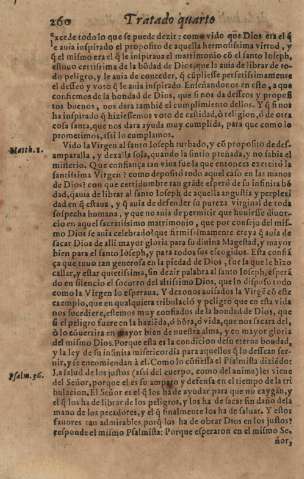 260 Tratado quarto
excede todo lo que se puede dezir: como vido que Dios era el q̃
le auia inspirado el proposito de aquella hermosissima virtud, y
q̃ el mismo era el q̃ le inspiraua el matrimonio cõ el santo Ioseph,
estuuo certissima de la bõdad de Dios que la auia de librar de to-
do peligro, y le auia de conceder, q̃ cũpliesse perfectissimamente
el desseo y voto q̃ le auia inspirado. Entendamos en esto, a que
confiemos de la bondad de Dios, que si nos da desseos y proposi
tos buenos, nos dara tambiẽ el cumplimiento dellos. Y q̃ si nos
ha inspirado q̃ hiziessemos voto de castidad, ò religion, ò de otra
cosa santa, que nos dara ayuda muy cumplida, para que como lo
prometimos, assi lo cumplamos.
Matth. 1.
Vido la Virgen al santo Ioseph turbado, y cõ proposito de des-
amparalla, y dexalla sola, quando la sintio preñada, y no sabia el
misterio. Que confiança tan viua fue la que entonces exercito la
santissima Virgen? como depositò todo aquel caso en las manos
de Dios? con que certidumbre tan grãde esperò de su infinita bõ
dad, q̃ auia de librar al santo Ioseph de aquella angustia y perplexi
dad en q̃ estaua, y q̃ auia de defender su pureza virginal de toda
sospecha humana, y que no auia de permitir que houiesse diuor-
cio en aquel sacratissimo matrimonio, que por consejo del mis-
mo Dios se auia celebrado? que firmissimamente creya q̃ auia de
sacar Dios de alli mayor gloria para su diuina Magestad, y mayor
bien para el santo Ioseph, y para todos sus escogidos. Esta confiã
ça que tuuo tan generosa en la piedad de Dios, fue la que le hizo
callar, y estar quietissima, sin dezir palabra al santo Ioseph, esperã
do en silencio el socorro del altissimo Dios, que lo dispuso todo
como la Virgen lo esperaua. Y dexonos auisados la Virgẽ cõ este
exemplo, que en qualquiera tribulaciõ y peligro que en esta vida
nos sucediere, estemos muy confiados de la bondad de Dios, que
si el peligro fuere en la haziẽda, ò hõra, ò vida, que nos sacara del,
ò lo conuertira en mayor bien de nuestra alma, y en mayor gloria
del mismo Dios. Porque esta es la condicion de su eterna bondad,
y la ley de su infinita misericordia para aquellos q̃ lo dessean ser-
uir, y se encomiendan à el. Como lo cõfiessa el Psalmista diziẽdo:
Psalm. 36.
La salud de los justos (assi del cuerpo, como del anima) les viene
del Señor, porque el es su amparo y defensa en el tiempo de la tri
bulacion. El Señor es el q̃ los ha de ayudar para que no caygan, y
el q̃ los ha de librar de los peligros, y los ha de sacar sin daño de la
mano de los pecadores, y el q̃ finalmente los ha de saluar. Y estos
fauores tan admirables porq̃ los ha de obrar Dios en los justos?
responde el mismo Psalmista: Porque esperaron en el mismo Se-
ñor,